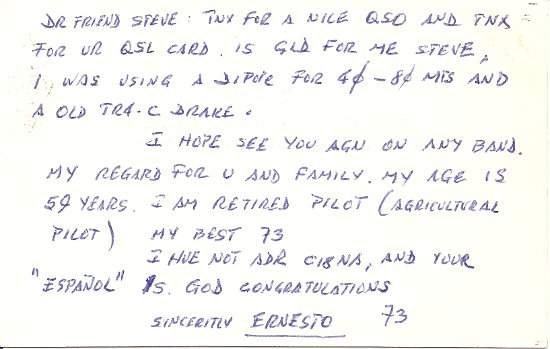 DR FRIEND STEVE: TNX FOR A NICE QSO AND TNX
FOR UR QSL CARD. IS GLD FOR ME STEVE,
I WAS USING A DIPOLE FOR 4Ø-8Ø MTS AND
A OLD TR4-C DRAKE.
I HOPE SEE YOU AGN ON ANY BAND.
MY REGARD FOR U AND FAMILY. MY AGE IS
59 YEARS. I AM RETIRED PILOT (AGRICULTURAL
PILOT) MY BEST 73
I HVE NOT ADR C18NA, AND YOUR
"ESPAÑOL" IS. GOD CONGRATULATIONS
SINCERITLY ERNESTO 73